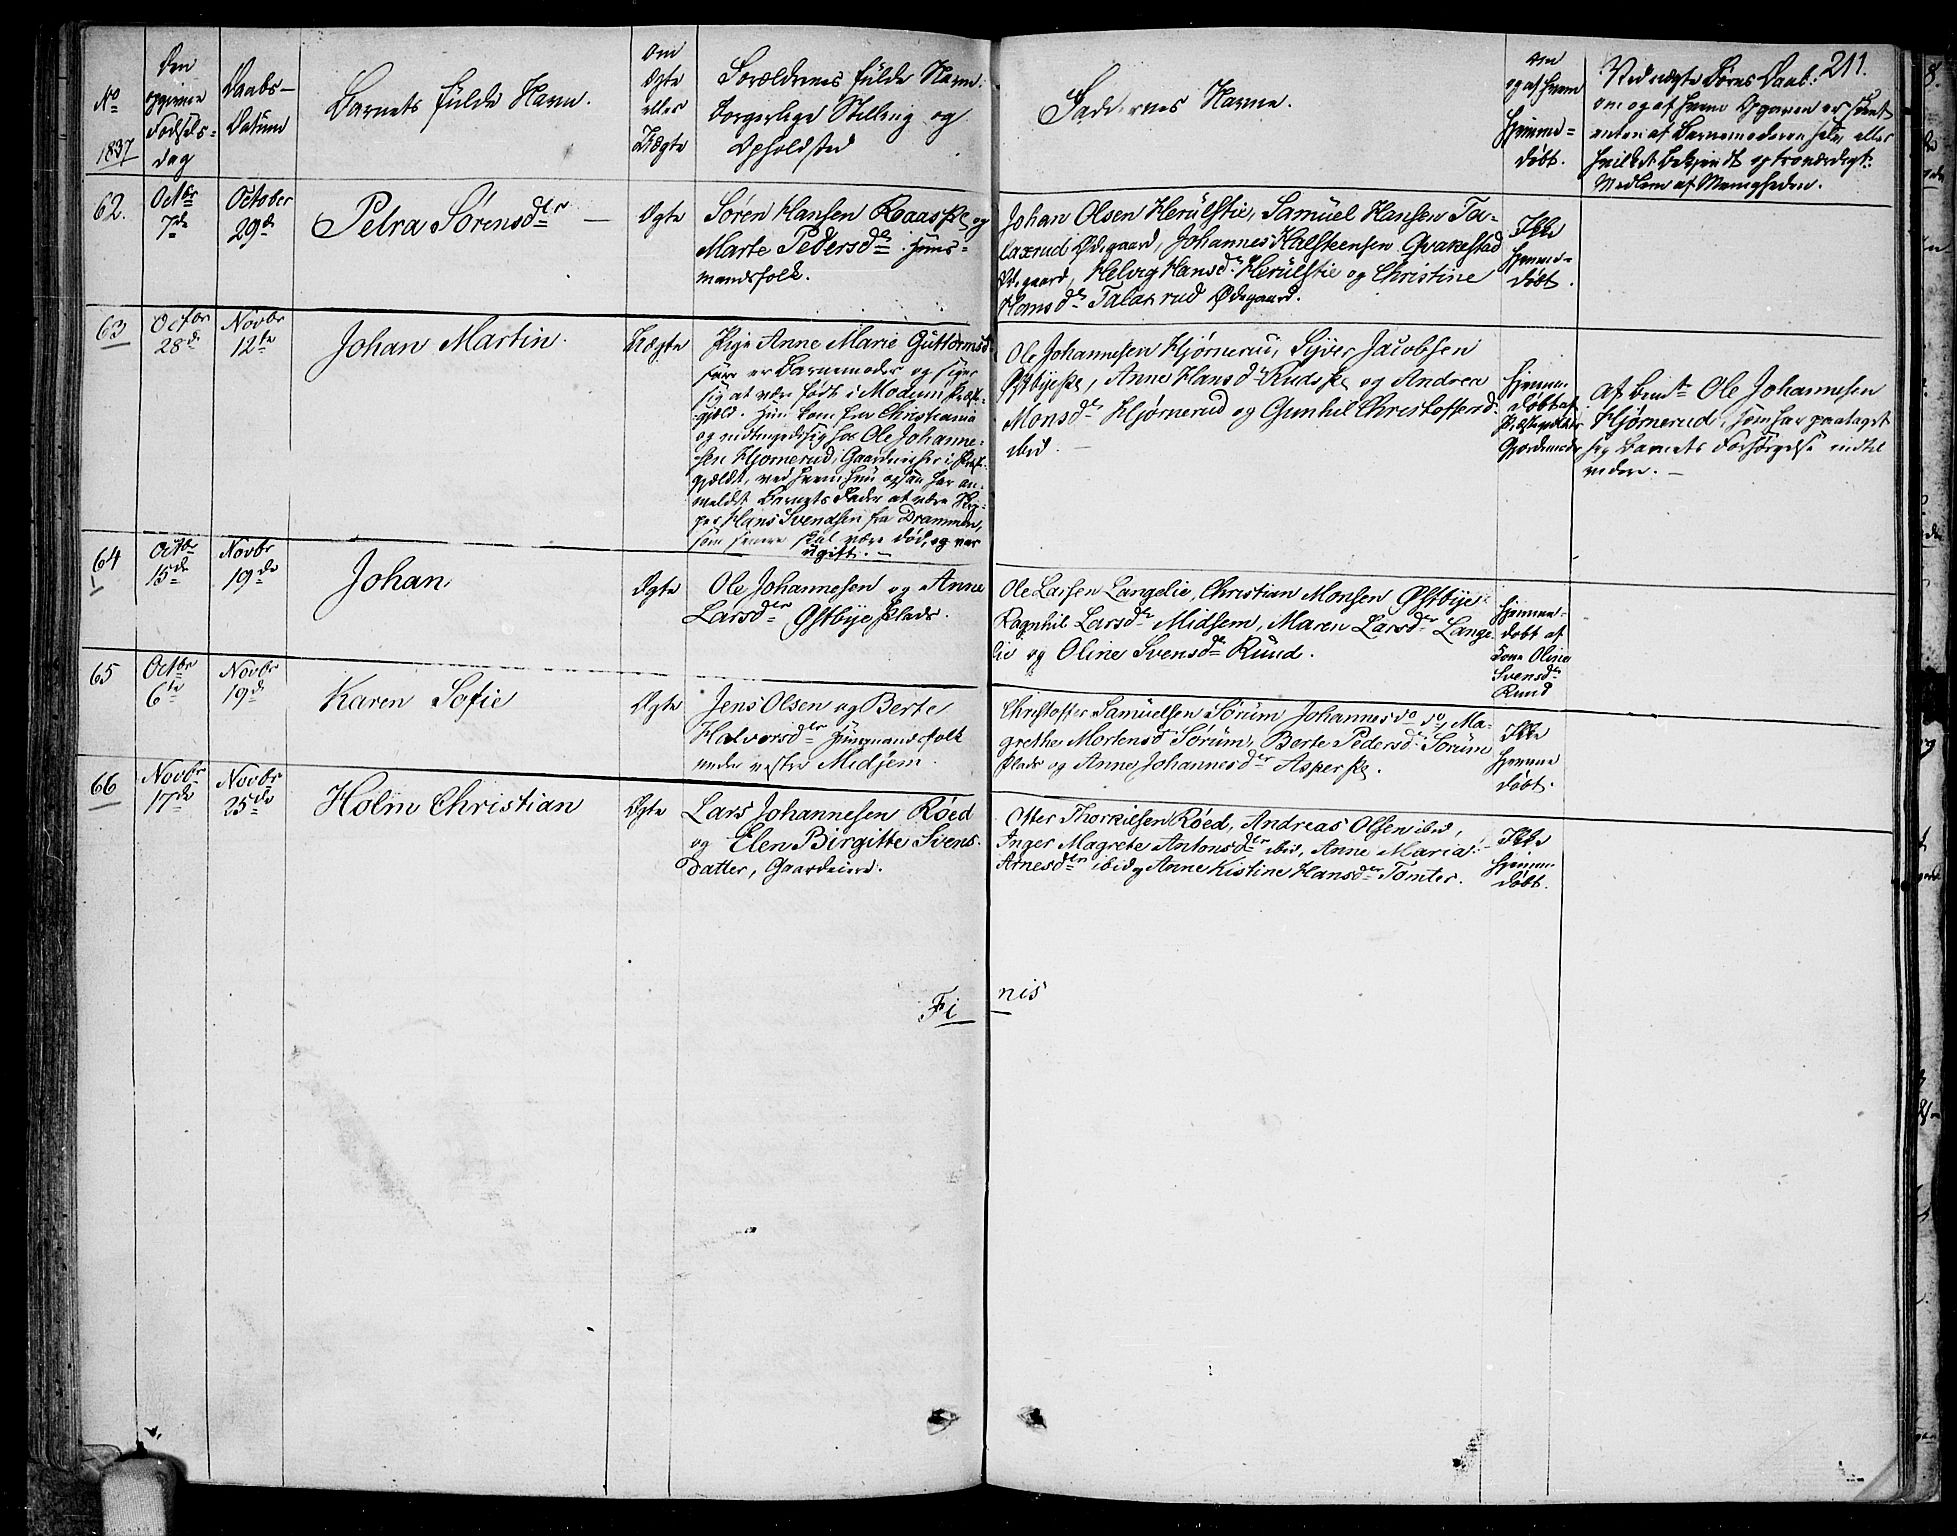 No
1837
Den
opgivne
Fødsels-
dag
Daabs-
Datum
Barnets fulde Navn.
Om
Ægte
eller
Uægte
Forældrenes fulde Navn,
borgerlige Stilling og
Opholdsted
Faddernes Navne.
Om
og af hvem
hjemme-
døbt.
211.
Ved uægte Børns Daab:
om og af hvem Opgaven er skeet
enten af Barnemoderen selv, eller
hvilket bekjendt og troværdigt
Medlem af Menigheden.
62.
Octbr
7de
October
29de
Petra Sørensdtr —
Ægte
Søren Hansen Roaasplz og
Marte Pedersdtr huus-
mandsfolk.
Johan Olsen Herülstie, Samüel Hansen Ta-
laxrud Ødegaard, Johannes Halsteensen Qvakestad
Ødegaard, Helvig Hansdr Herülstie og Christine
Hansdtr Talaxrud Ødegaard.
Ikke
hjemme-
døbt.
63
Octbr
28de
Novbr
12te
Johan Martin.
Uægte
Pige Anne Marie Guttormsd
er Barnemoder og siger
sig at være født i Modum Præste-
gjeld. Hun kom fra Christiania
og hos Ole Johanne-
sen Hjørnerud, Gaardbruger i Præste-
gjældt, ved hvem hun ogsaa har an-
meldt Barnets Fader at være
Hans Svendsen fra Drammen,
som senere skal være død, og var
ugift. —
Ole Johannesen Hjørnerud, Syver Jacobsen
Østbyeplz, Anne Hansdr Rudsplz og Andrea
Monsdtr Hjørnerud og Gunhil Christoffersd:
ibid —
hjemme-
døbt af
Gjordemoder
Af bemte Ole Johannesen
Hjørnerud, som har paataget
sig Barnets Forsørgelse indtil
videre. —
64
Octbr
15de
Novbr
19de
Johan
Ægte
Ole Johannesen og Anne
Larsdtr Østbye Plads.
Ole Larsen Langelie, Christian Monsen Østbye
Ragnhil Larsdtr Midsem, Maren Larsdtr Lange-
lie og Oline Svensdtr Ruud.
hjemme-
døbt af
Kone Oline
Svensdtr
Ruud
65
Octbr
6te
Novbr
19de
Karen Sofie
Ægte
Jens Olsen og Berte
Halvorsdtr huusmandsfolk
under vestre Midsem.
Christoffer Samuelsen Sørum Johannes do do, Ma-
grethe Mortensd Sørum, Berte Pedersdtr Sørum
Plads og Anne Johannesdtr Asperplz.
Ikke
hjemme
døbt.
66
Novbr
17de
Novbr
25de
Holm Christian
Ægte
Lars Johannesen Røed
og Elen Birgitte Svens-
datter, Gaardeiere.
Otter Thorkielsen Røed, Andreas Olsen ibid,
Inger Magrete Antonsdtr ibid, Anne Maria
Arnesdtr ibid og Anne Kistine Hansdtr Tomter.
Ikke
hjemme-
døbt.
Fi nis